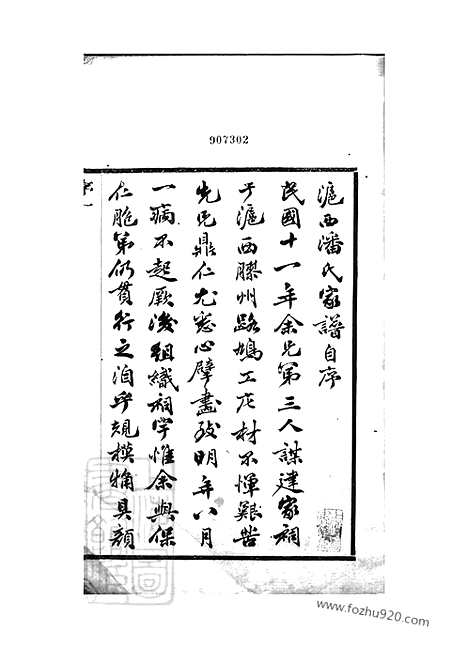 907302
滬西潘氏家譜自序
民國十一年余兄第三人謀建家祠
于滬西膠州路鳩工庀材不憚艱苦
先兄鼎仁尤悉心擘畫致明年八月
一病不起厥後組織祠宇惟余與保
仁胞第仍貫行之洎乎規模觕具顏
www.fozhu920.com